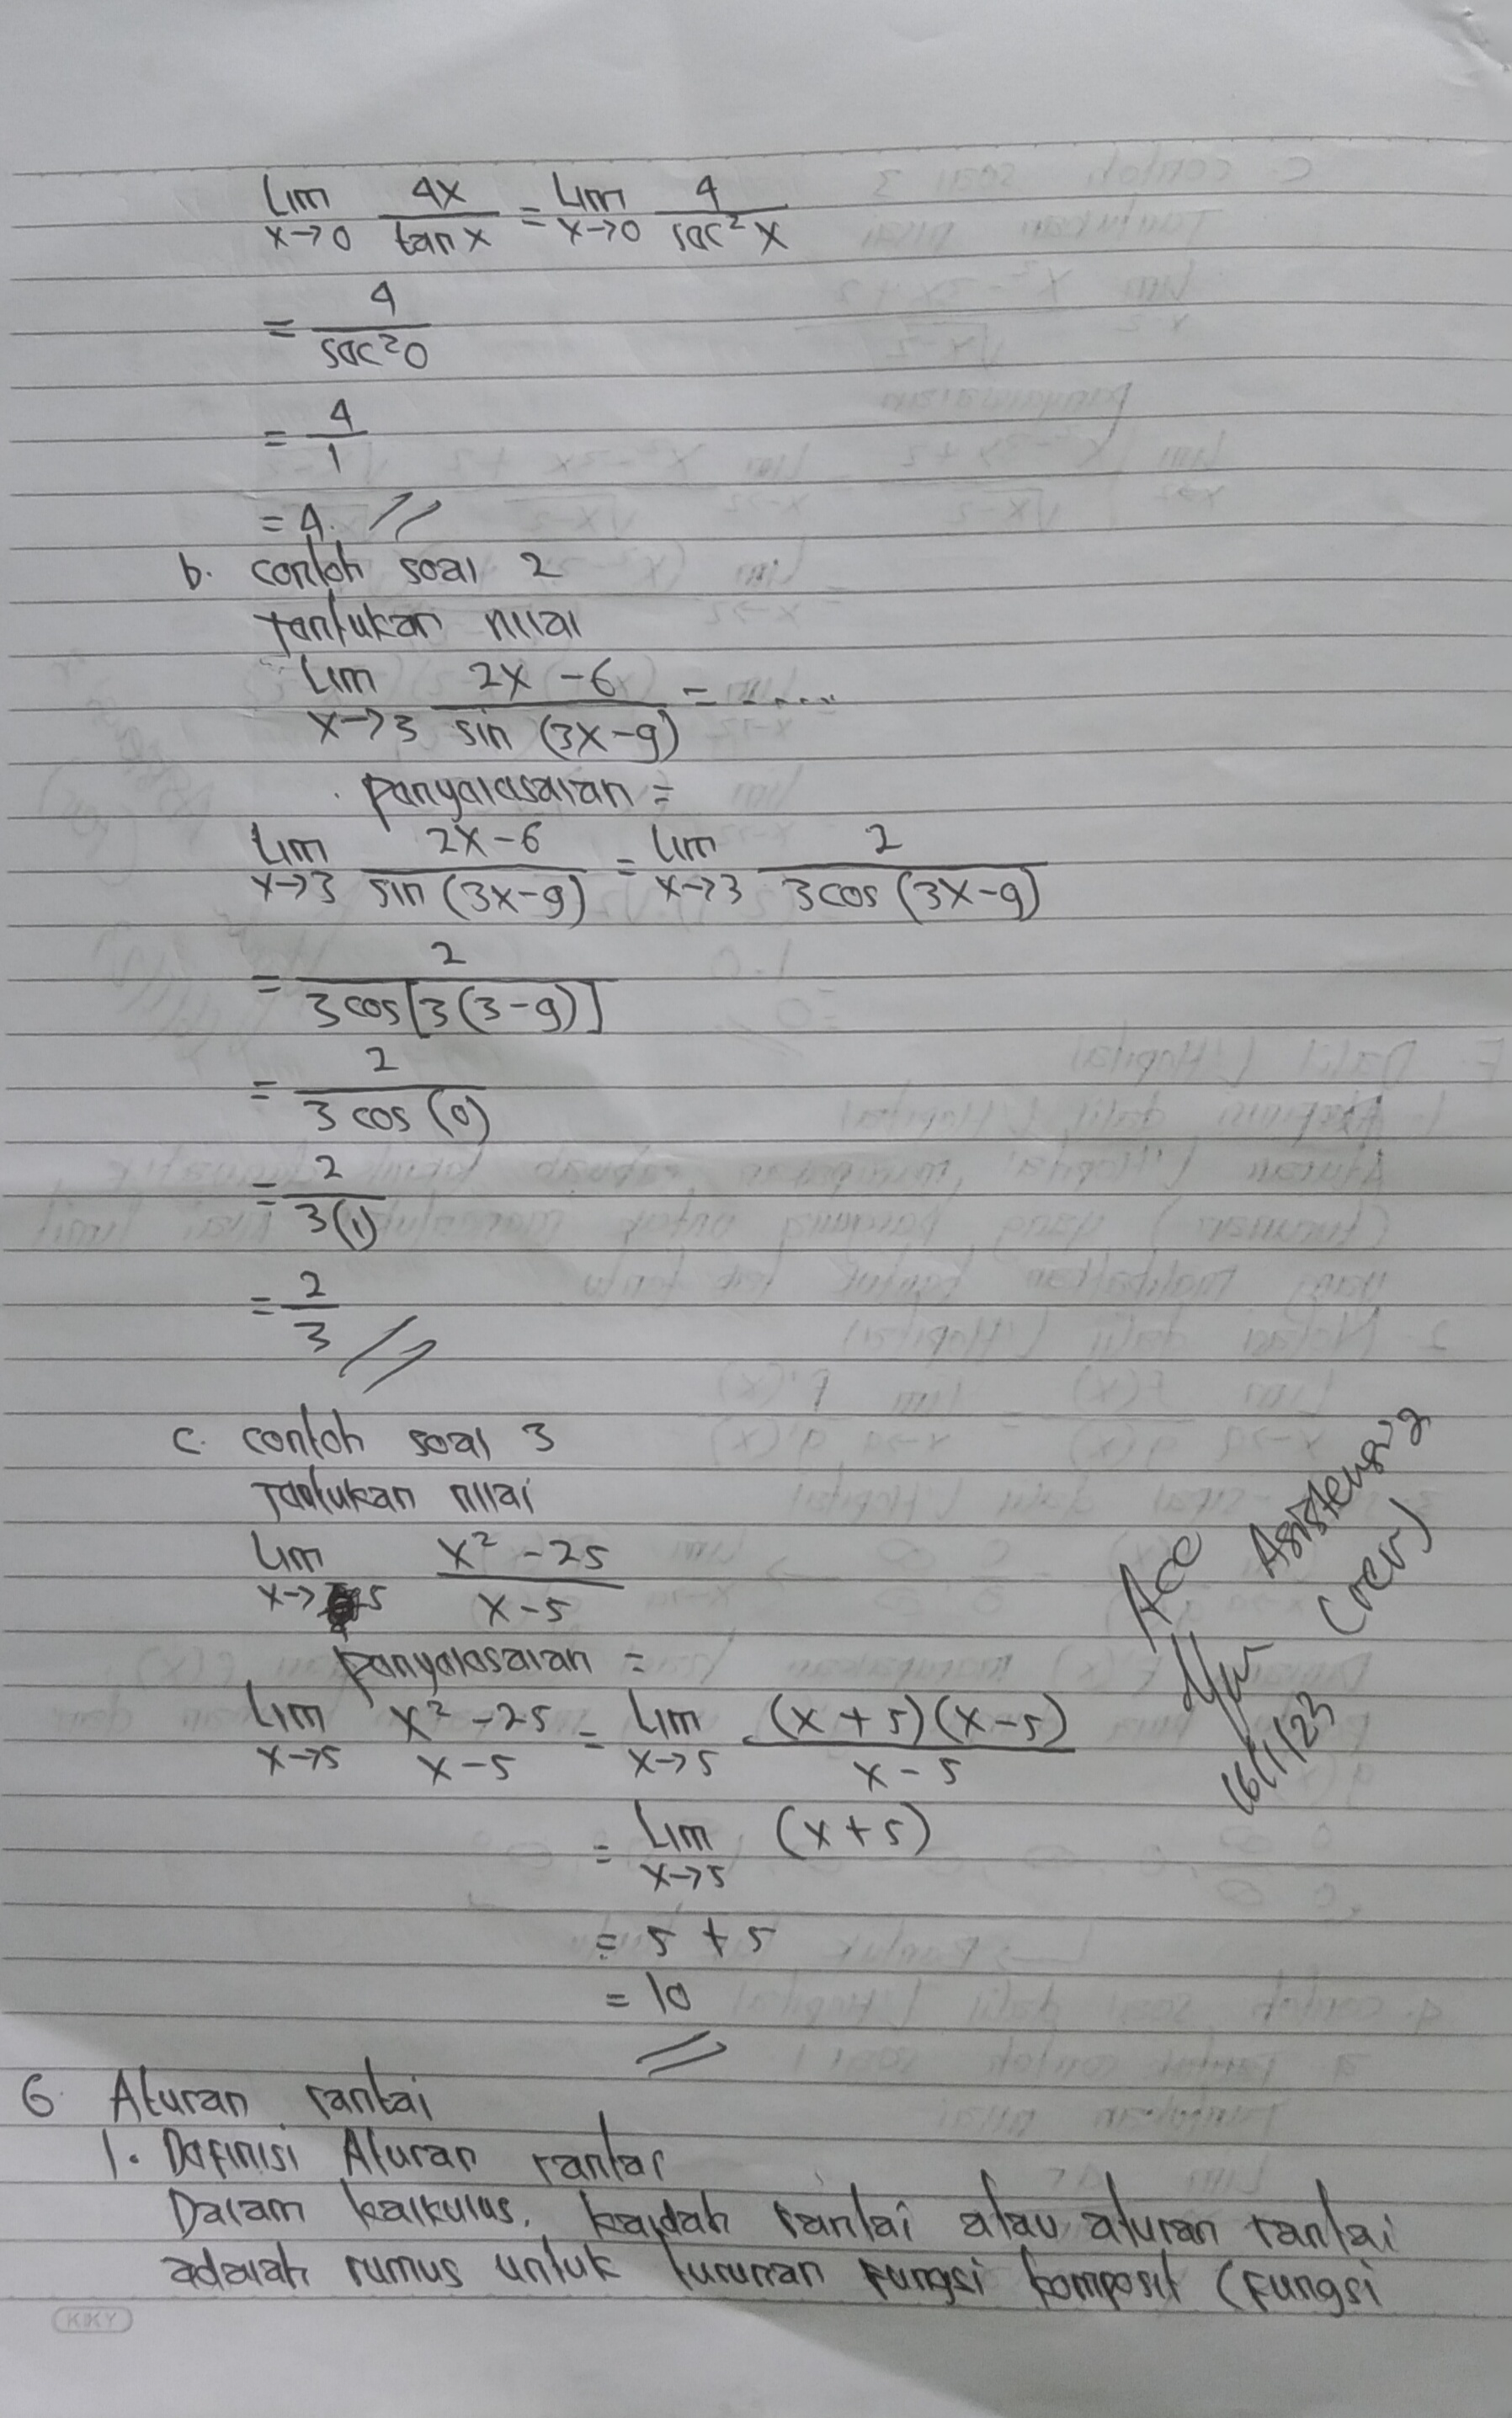 Lim x→0 4x/tan x = Lim x→0 4/sec² x
= 4/sec² 0
= 4/1
= 4. //
b. contoh soal 2
tentukan nilai
Lim x→3 2x - 6/sin (3x-9) = .....
penyelesaian =
Lim x→3 2x-6/sin (3x-9) = Lim x→3 2/3 cos (3x-9)
= 2/3 cos [3(3-9)]
= 2/3 cos (0)
= 2/3(1)
= 2/3 //
c. contoh soal 3
Tentukan nilai
Lim x→5 x² - 25/x - 5
penyelesaian =
Lim x→5 x² - 25/x - 5 = Lim x→5 (x + 5)(x - 5)/x - 5
= Lim x→5 (x + 5)
= 5 + 5
= 10 //
Acc Asistensi 2
(rev)
16/1/23
G. Aturan rantai
1. Definisi Aturan rantai
Dalam kalkulus, kaidah rantai atau aturan rantai
adalah rumus untuk turunan fungsi komposit (Fungsi
KKY